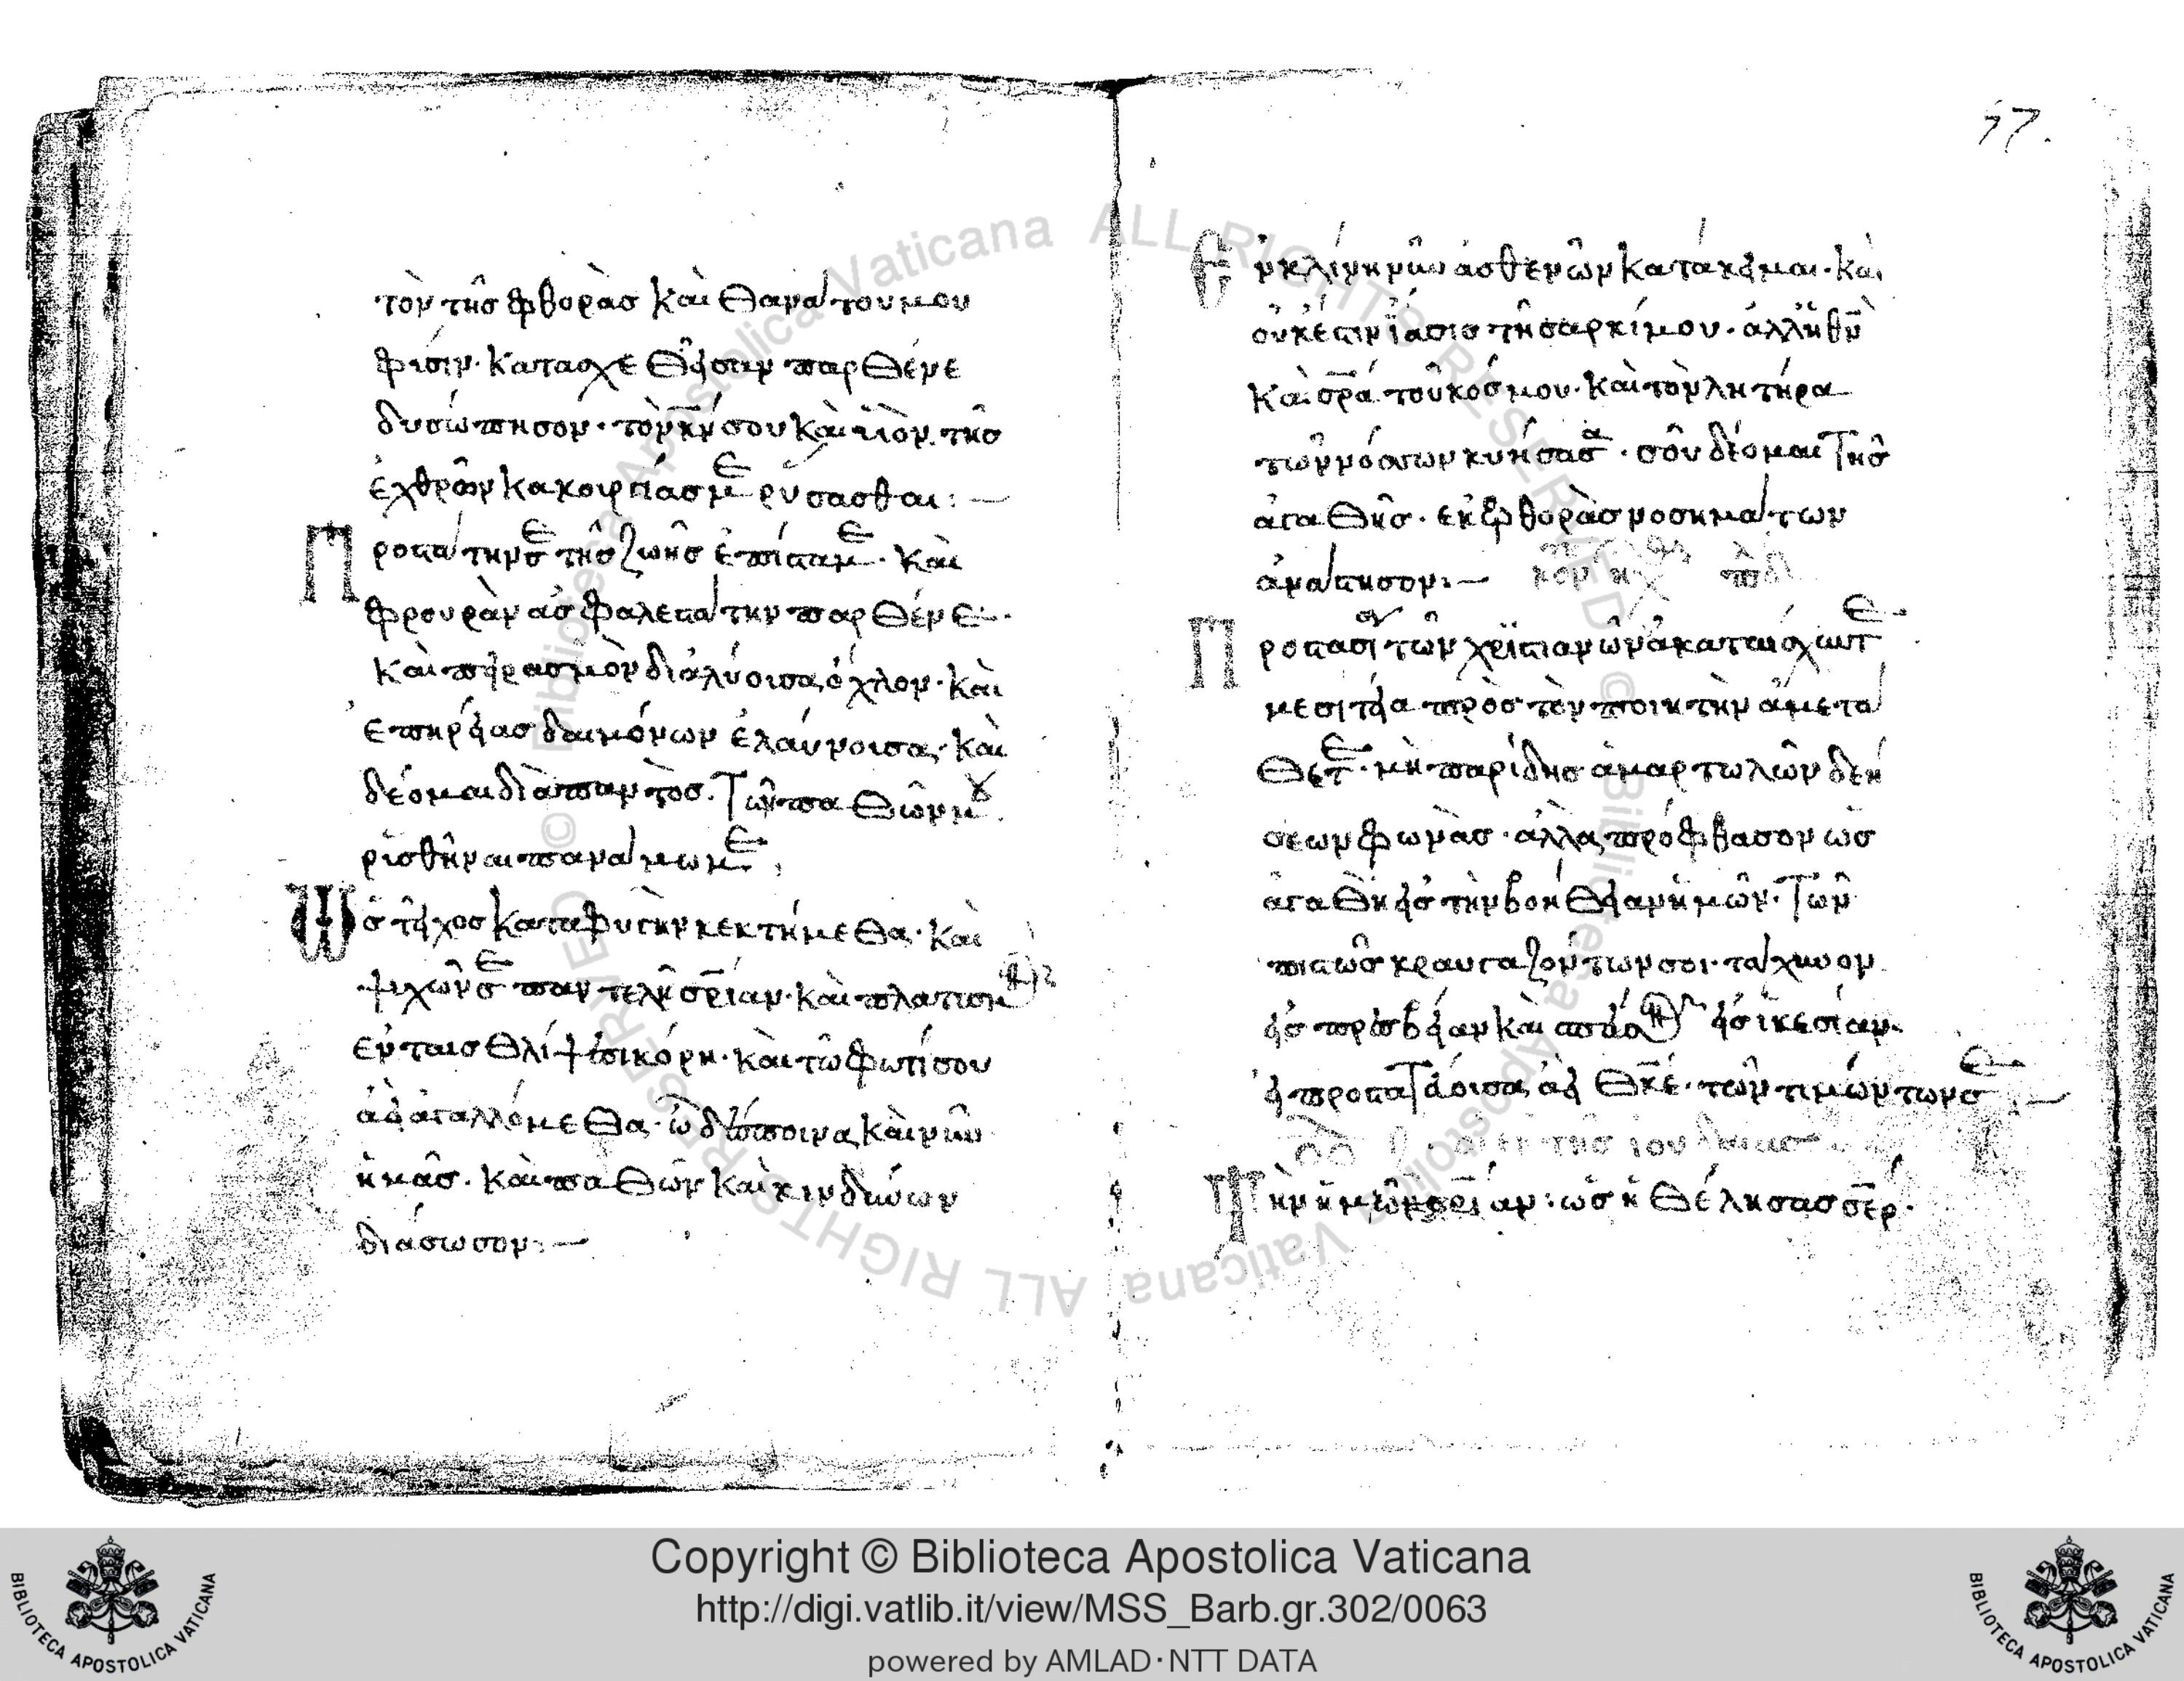 τὸν τῆσ φθορὰσ καὶ θανάτου μου
φύσιν· κατασχεθεῖσαν παρθένε
δυσώπησον· τὸν κν̅ σου καὶ υἱὸν τῆσ
ἐχθρῶν κακουργίασ με ρύσασθαι:—
Προστάτην σε τῆσ ζωῆσ ἐπίσταμε· Καὶ
φρουρὰν ἀσφαλεστάτην παρθένε·
Καὶ πειρασμὸν διαλύουσα ὄχλον· καὶ
ἐπηρείασ δαιμόνων ἐλαύνουσα· καὶ
δέομαι διὰ παντὸσ· Τῶν παθῶν μου
ρισθῆναι παναμωμε
Ὡσ τεῖχοσ καταφυγὴν κεκτήμεθα· καὶ
ψυχῶν σε παντελῆ σρ̅ίαν· καὶ πλατισμ
ἐν ταισ θλίψεσι κόρη· καὶ τῶ φωτί σου
ἀεὶ ἀγαλλόμεθα· ὦ δέσποινα καὶ νῦν
ἡμᾶσ· καὶ παθῶν καὶ κινδύνων
διάσωσον:—
57.
Εν κλίνη νῦν ἀσθενῶν κατάκειμαι· καὶ
οὐκ έστιν ϊασισ τῆ σαρκί μου· ἀλλ ἡ θν̅
Καὶ σρ̅α τοῦ κόσμου· Καὶ τὸν λητήρα
τῶν νόσων κυήσασα· σοῦ δέομαι Τῆσ
ἀγαθῆσ· εκ φθορὰσ νοσημάτων
ἀνάστησον:—
Προστασία τῶν χριστιανῶν ἀκαταισχυντε·
μεσιτεία πρὸσ τὸν ποιητὴν ἀμετά
θετε· μὴ παρίδησ ἁμαρτωλῶν δεή
σεων φωνὰσ· ἀλλα πρόφθασον ὡσ
ἀγαθὴ εἰσ τὴν βοήθειαν ἡμῶν· Τῶν
πιστῶσ κραυγαζόντων σοι· τάχυνον
εἰσ πρεσβείαν καὶ σπεῦσον εἰσ ἱκεσίαν·
ἡ προστατεύουσα ἀεὶ θκ̅ε· τῶν τιμώντων σε:—
ἐκ τῆσ ιουδαιασ
Τὴν ἡμῶν σρ̅ίαν: ὡσ ἠθέλησασ σε̅ρ·
Copyright © Biblioteca Apostolica Vaticana
http://digi.vatlib.it/view/MSS_Barb.gr.302/0063
powered by AMLAD·NTT DATA
BIBLIOTECA APOSTOLICA VATICANA
BIBLIOTECA APOSTOLICA VATICANA